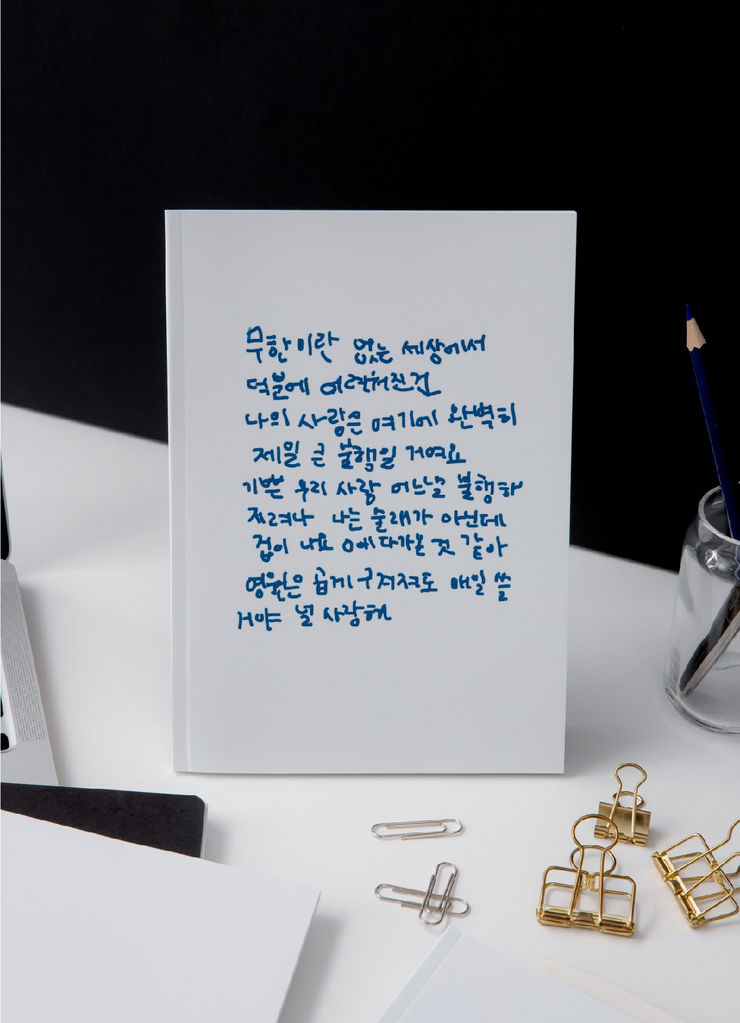 무한이란 없는 세상에서
덕분에
나의 사랑은 여기에 완벽히
제일 큰 불행일 거여요
기쁜 우리 사랑 어느날 불행하
지려나 나는 술래가 아닌데
겁이 나요 에 다가온 것 같아
영원은 곱게 구겨져도 매일 쓸
거야 널 사랑해